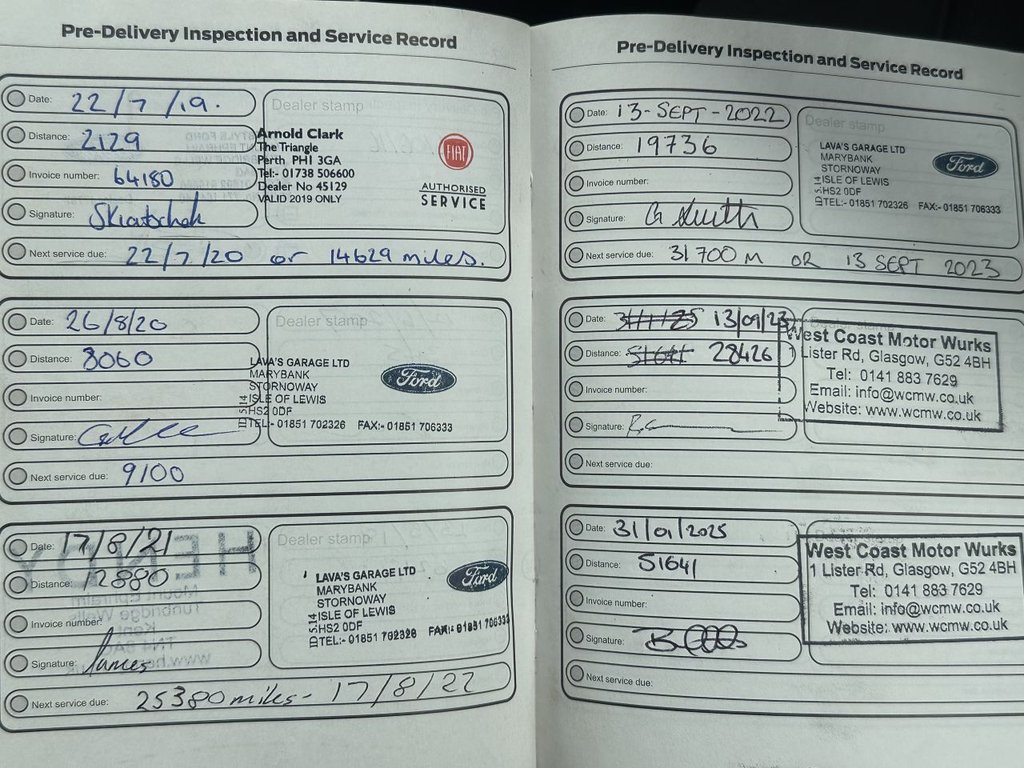 Pre-Delivery Inspection and Service Record
Date: 22/7/19.
Distance: 2129
Invoice number: 64180
Signature:
Next service due: 22/7/20 or 14629 miles.
Dealer stamp
Arnold Clark
The Triangle
Perth PH1 3GA
Tel:- 01738 506600
Dealer No 45129
VALID 2019 ONLY
FIAT
AUTHORISED
SERVICE
Date: 26/8/20
Distance: 8060
Invoice number:
Signature:
Next service due: 9100
Dealer stamp
LAVA'S GARAGE LTD
MARYBANK
STORNOWAY
ISLE OF LEWIS
HS2 0DF
TEL:- 01851 702326 FAX:- 01851 706333
Ford
Date: 17/8/21
Distance: 12880
Invoice number:
Signature:
Next service due: 25380 miles - 17/8/22
Dealer stamp
LAVA'S GARAGE LTD
MARYBANK
STORNOWAY
ISLE OF LEWIS
HS2 0DF
TEL:- 01851 702326 FAX:- 01851 706333
Ford
Pre-Delivery Inspection and Service Record
Date: 13-SEPT-2022
Distance: 19736
Invoice number:
Signature:
Next service due: 31700 M OR 13 SEPT 2023
Dealer stamp
LAVA'S GARAGE LTD
MARYBANK
STORNOWAY
ISLE OF LEWIS
HS2 0DF
TEL:- 01851 702326 FAX:- 01851 706333
Ford
Date: 13/09/23
Distance: 28426
Invoice number:
Signature:
Next service due:
West Coast Motor Wurks
1 Lister Rd, Glasgow, G52 4BH
Tel: 0141 883 7629
Email: info@wcmw.co.uk
Website: www.wcmw.co.uk
Date: 31/01/2025
Distance: 51641
Invoice number:
Signature:
Next service due:
West Coast Motor Wurks
1 Lister Rd, Glasgow, G52 4BH
Tel: 0141 883 7629
Email: info@wcmw.co.uk
Website: www.wcmw.co.uk